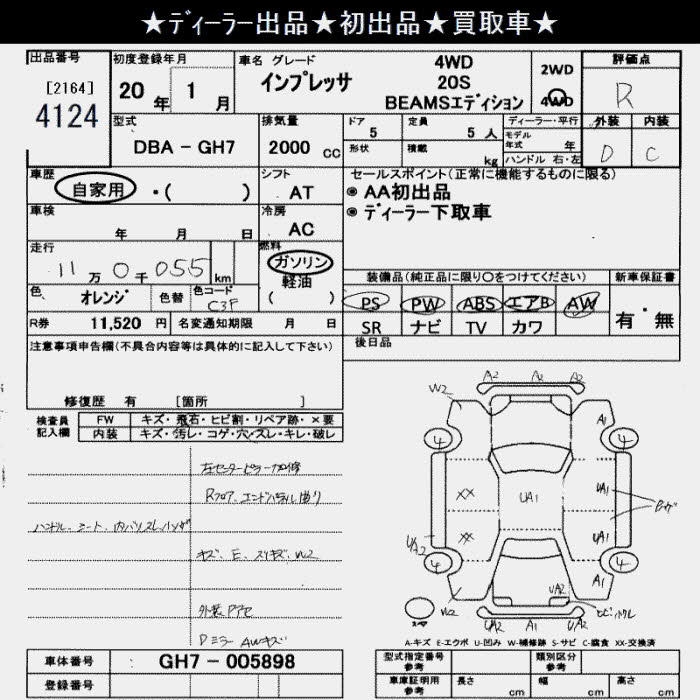 ★ディーラー出品★初出品★買取車★
出品番号
[2164]
4124
初度登録年月
20年 1月
車名 グレード
インプレッサ
4WD
20S
BEAMSエディション
2WD
4WD
評価点
R
外装 内装
D C
型式
DBA - GH7
排気量
2000 cc
ドア 5
定員 5 人
形状 積載 kg
ディーラー・平行
モデル年式 年
ハンドル 右・左
車歴
自家用 ・( )
シフト
AT
車検
年 月 日
冷房
AC
セールスポイント(正常に機能するものに限る)
◉ AA初出品
◉ ディーラー下取車
走行
11万0千055 km
燃料
ガソリン
軽油
( )
色 オレンジ
色替
色コード C3P
装備品(純正品に限り○をつけてください)
PS PW ABS エアB AW
SR ナビ TV カワ
新車保証書
有・無
R券 11,520 円
名変通知期限 月 日
注意事項申告欄(不具合内容等は具体的に記入して下さい)
後日品
修復歴 有 [箇所 ]
検査員記入欄
FW キズ・飛石・ヒビ割・リペア跡・×要
内装 キズ・汚レ・コゲ・穴・スレ・キレ・破レ
左センターピラー
Rフロア、エンドパネル曲り
ハンドル、シート、内バリスレ
キズ、E、スリキズ、W2
外装
Dミラー AWキズ
A2 A2 A2
W2 A1
4 4
XX UA1 UA1
XX UA1
UA2
4 4
A1
W2 UA2
UA2 A1 UA2
A-キズ E-エクボ U-凹み W-補修跡 S-サビ C-腐食 XX-交換済
車体番号 GH7 - 005898
登録番号
型式指定番号 参考
類別区分 参考
車庫証明用 参考
長さ cm 幅 cm 高さ cm